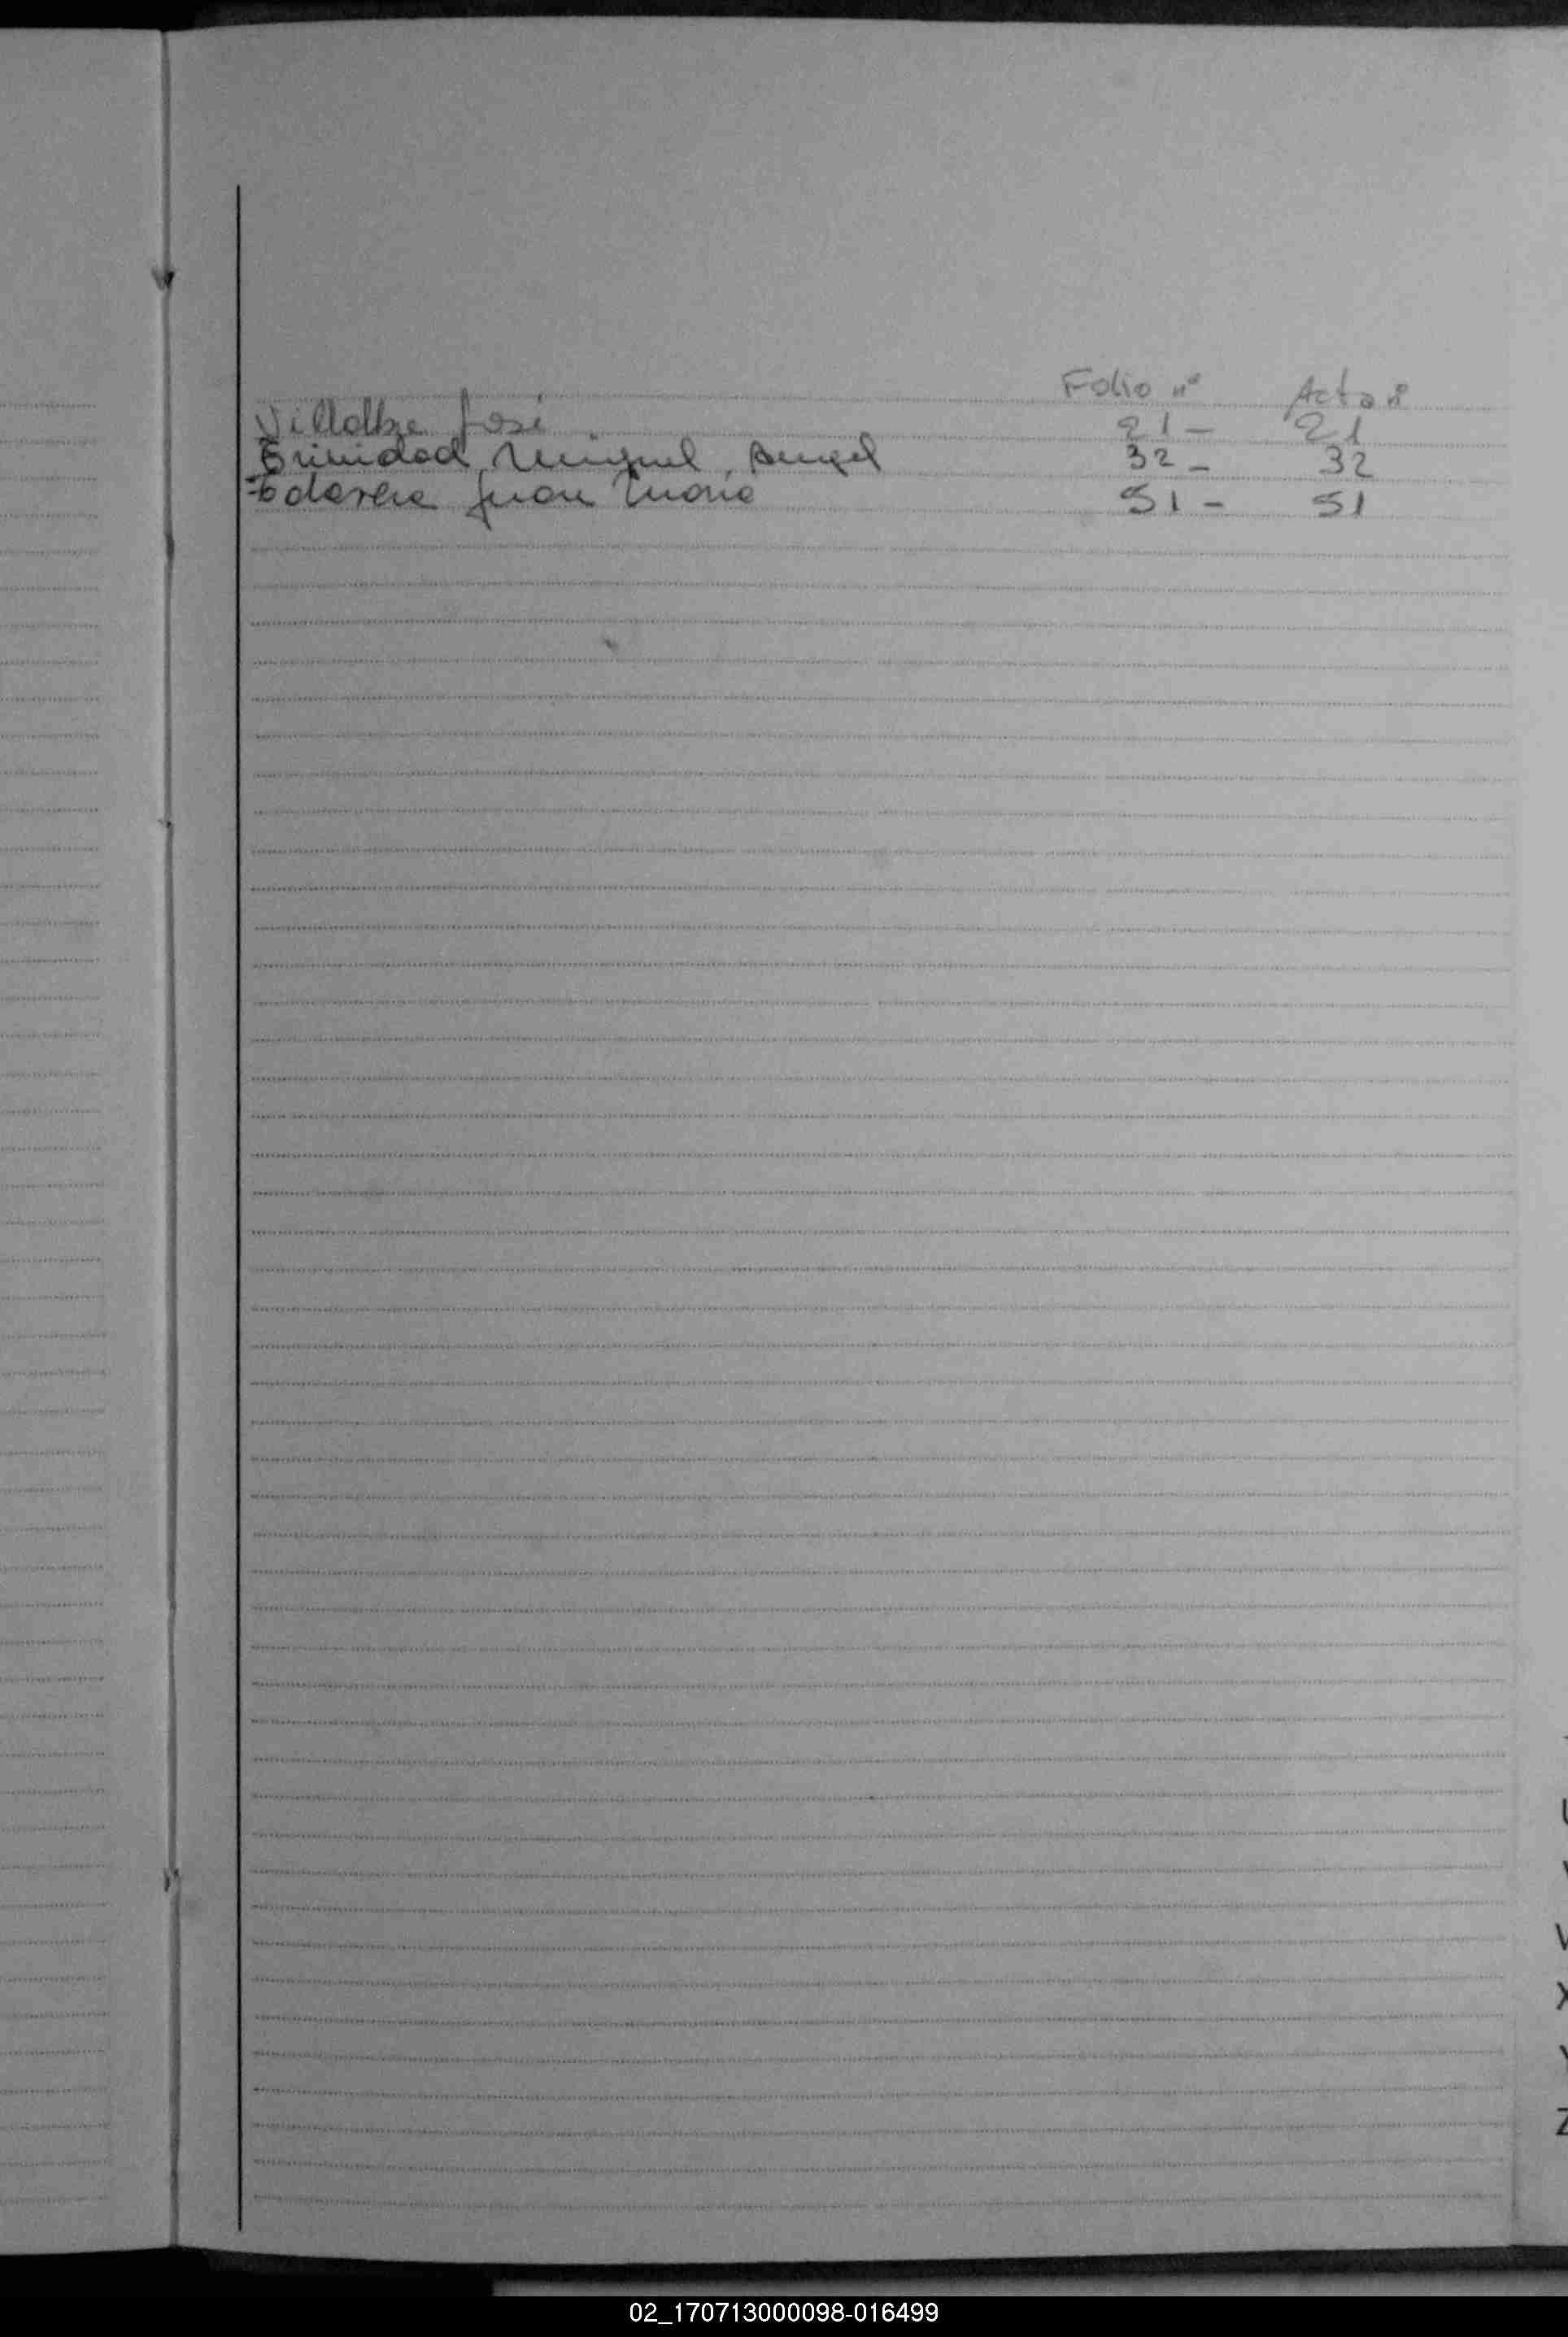 Folio nº Acta nº
José 21 - 21
Trinidad, Miguel, Angel 32 - 32
Juan Maria 51 - 51
V
X
Y
Z
02_170713000098-016499